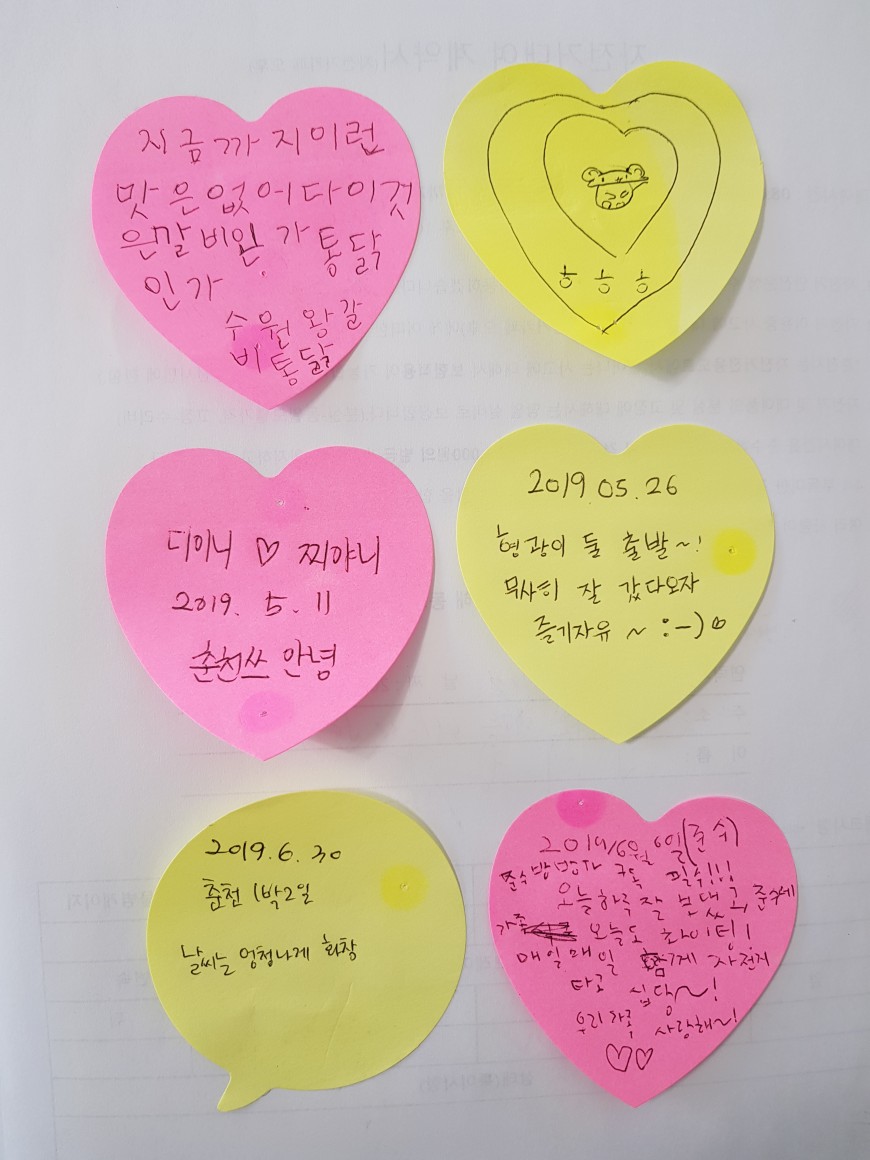 지금까지이런
맛은없어다이것
은갈비인가통닭
인가
수원왕갈
비통닭
흥흥흥
디이니 ♡ 찌야니
2019. 5. 11
춘천쓰 안녕
2019.05.26
형광이 둘 출발~!
무사히 잘 갔다오자
즐기자유 ~ :-)
2019.6.30
춘천 1박2일
날씨는 엉청나게 화창
2019/6월 6일(준수)
구독 필수!!!
오늘하루 잘 보냈고, 준수네
가족 오늘도 화이팅!
매일매일 함께 자전거
타고 십당~!
우리 사랑해~!
♡♡